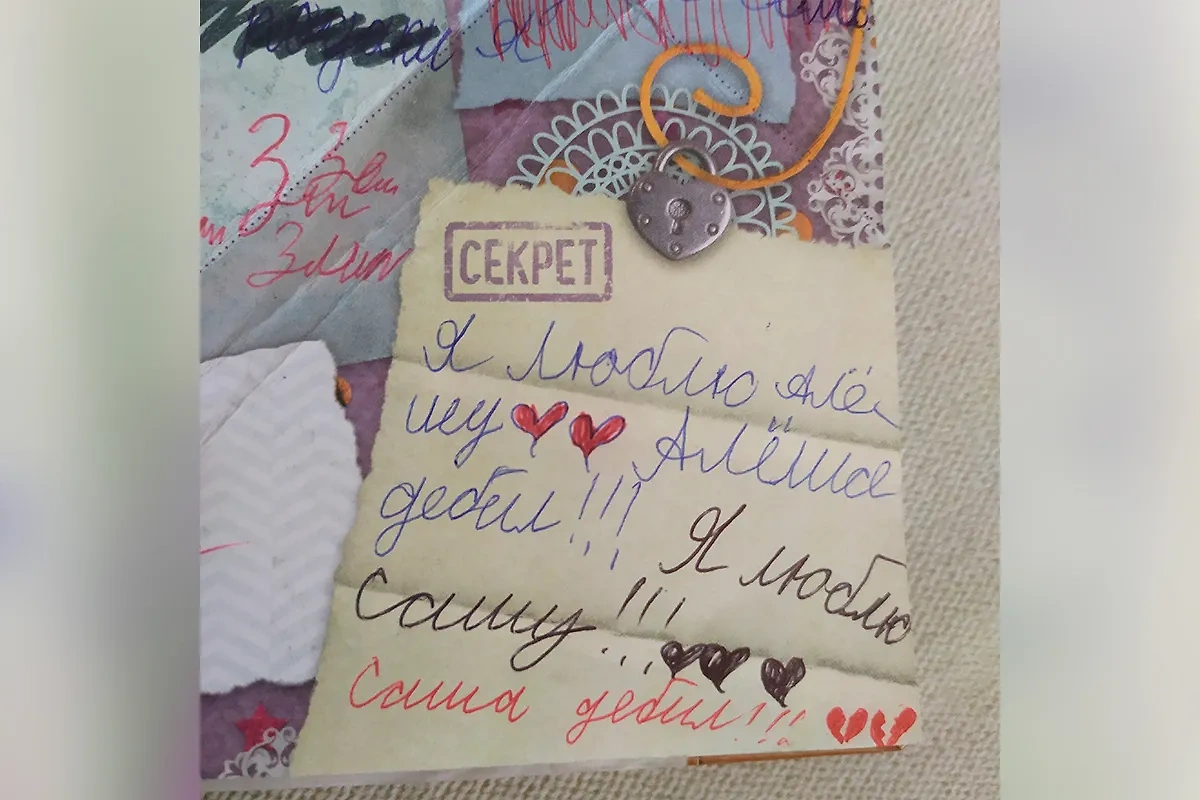 СЕКРЕТ
Я люблю Алё
шу Алёша
дебил!!! Я люблю
Сашу!!!
Саша дебил!!!